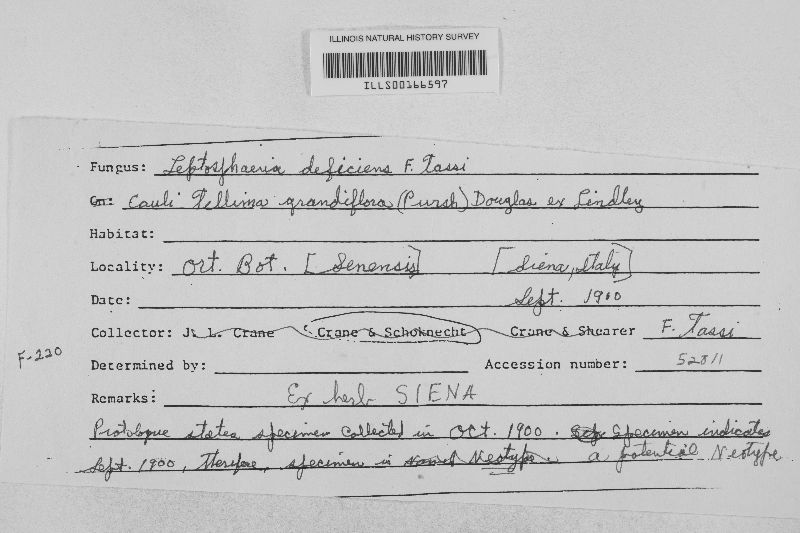 ILLINOIS NATURAL HISTORY SURVEY
ILLS00166597
Fungus: Leptosphaeria deficiens F. Tassi
On: Cauli Tellima grandiflora (Pursh) Douglas ex Lindley
Habitat:
Locality: Ort. Bot. [Senensis] [Siena, Italy]
Date: Sept. 1900
Collector: J. L. Crane Crane & Schoknecht Crane & Shearer F. Tassi
F-220
Determined by: Accession number: 52811
Remarks: Ex herb. SIENA
Protologue states specimen collected in Oct. 1900. Specimen indicates
Sept. 1900, Therefore, specimen is Neotype. a potential Neotype